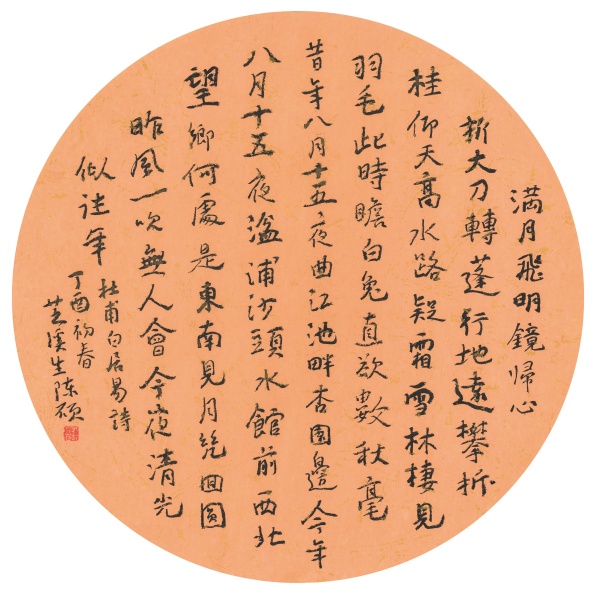 满月飛明鏡歸心
折大刀轉蓬行地遠攀折
桂仰天高水路疑霜雪林棲見
羽毛此時瞻白兔直欲數秋毫
昔年八月十五夜曲江池畔杏園邊今年
八月十五夜湓浦沙頭水館前西北
望鄉何處是東南見月幾回圓
昨風一吹無人會今夜清光
似往年
杜甫白居易詩
丁酉初春
芝溪生陈硕